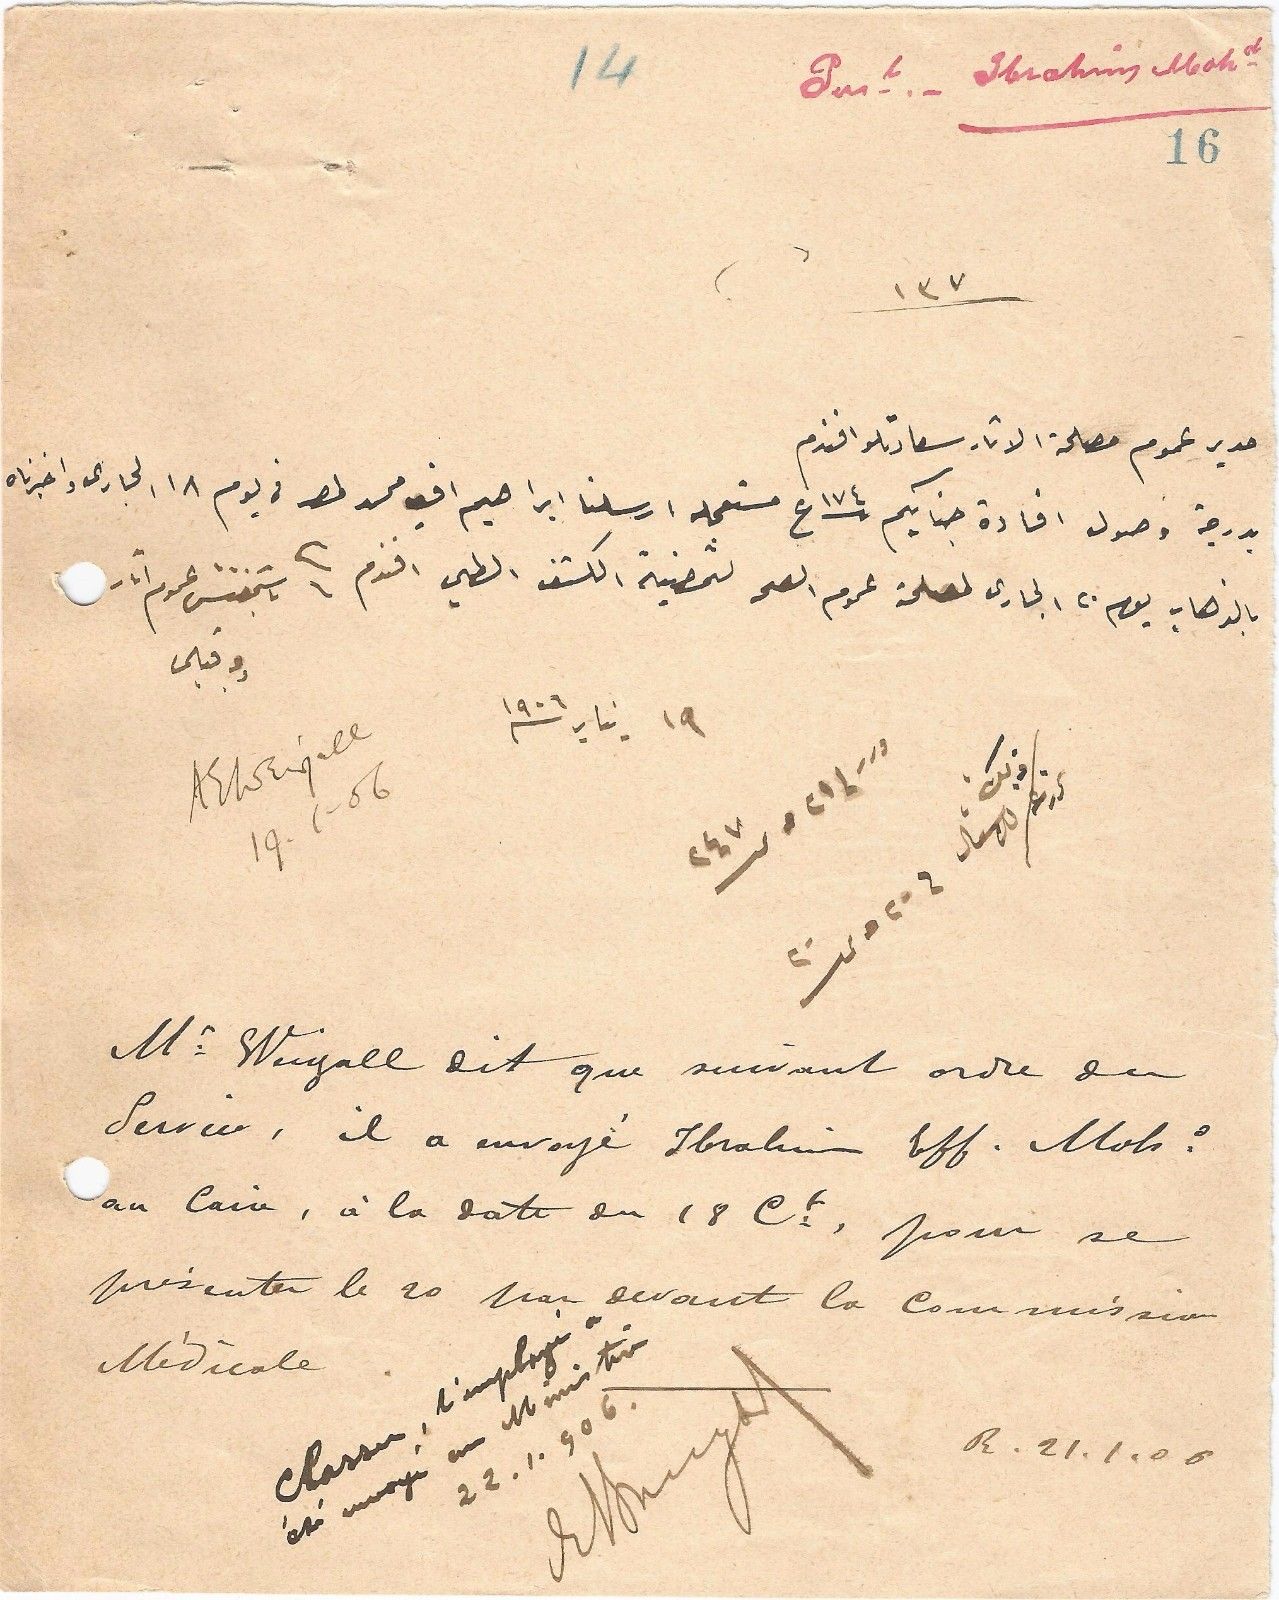 14
Pers.t. - Ibrahim Moh.d
16
١٣٧
مدير عموم مصلحة الاثار سعادتلو افندم
بدرجة وصول افادة جنابكم ١٧٤ ع مستعجله ارسلنا ابراهيم افندى محمد لمصر فى يوم ١٨ الجارى واخبرناه
بالذهاب يوم ٢٠ الجارى لمصلحة عموم الصحه لتمضية الكشف الطبى افندم باشمفتش عموم اثار
وقبلى
١٩ يناير ١٩٠٦
AEWeigall
19-1-06
٢٤٧
٢٠
Mr. Weigall dit que suivant ordre du
Service, il a envoyé Ibrahim Eff. Moh.d
au Caire, à la date du 18 Ct., pour se
présenter le 20 par devant la Commission
Médicale
Classer, l'employé a
été envoyé au Ministère
22.1.906.
R. 21.1.06